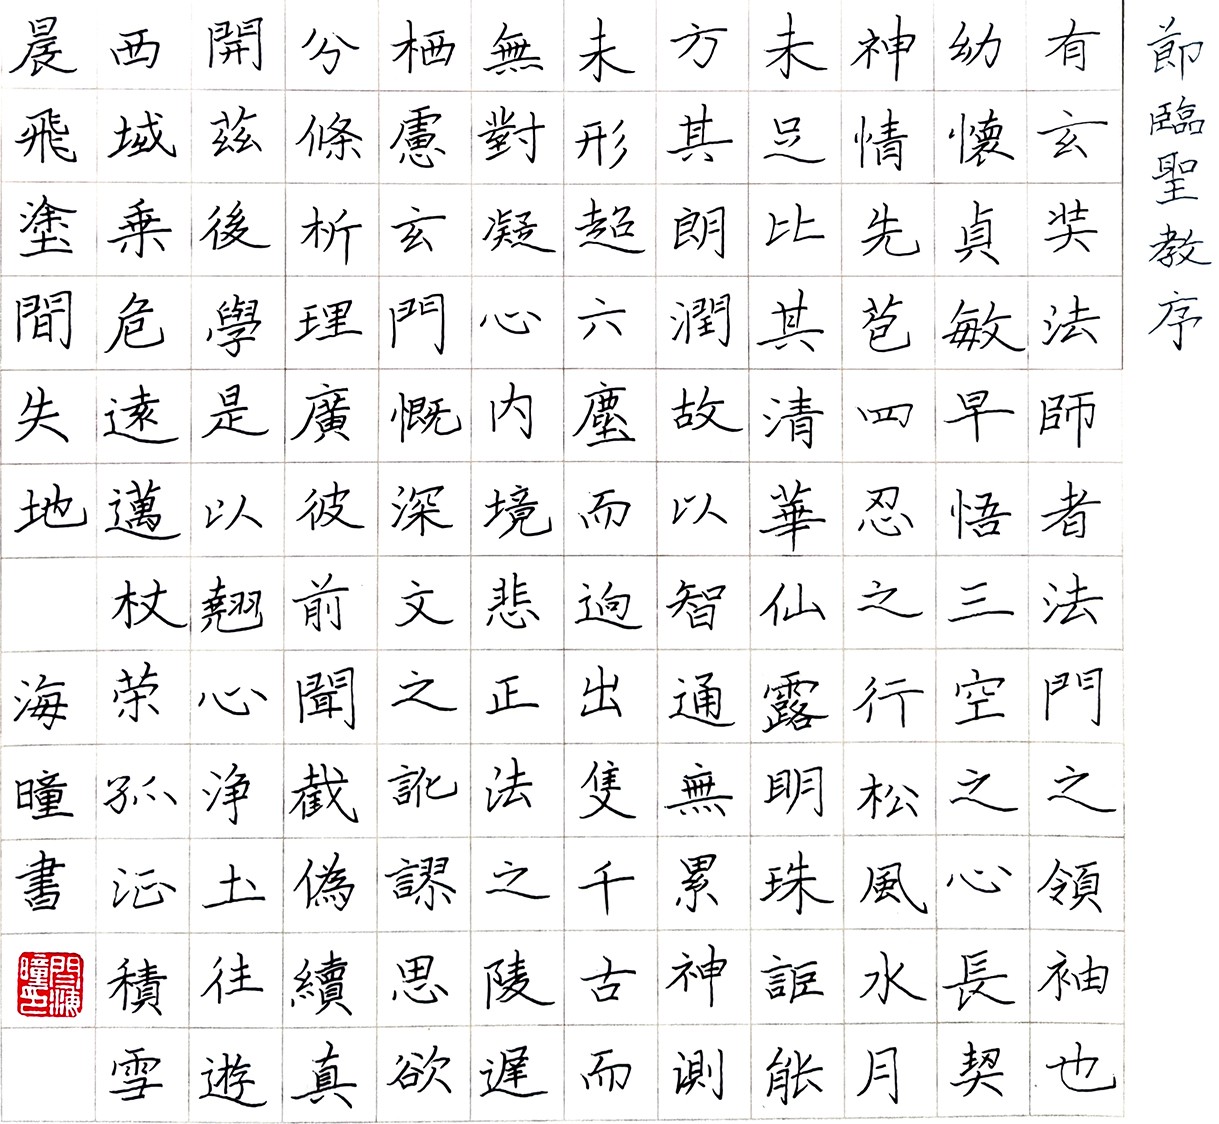 節臨聖教序
有玄奘法師者法門之領袖也
幼懷貞敏早悟三空之心長契
神情先苞四忍之行松風水月
未足比其清華仙露明珠詎能
方其朗潤故以智通無累神測
未形超六塵而迥出隻千古而
無對凝心內境悲正法之陵遲
栖慮玄門慨深文之訛謬思欲
分條析理廣彼前聞截偽續真
開茲後學是以翹心净土往遊
西域乘危遠邁杖荣孤征積雪
晨飛塗間失地
海瞳書